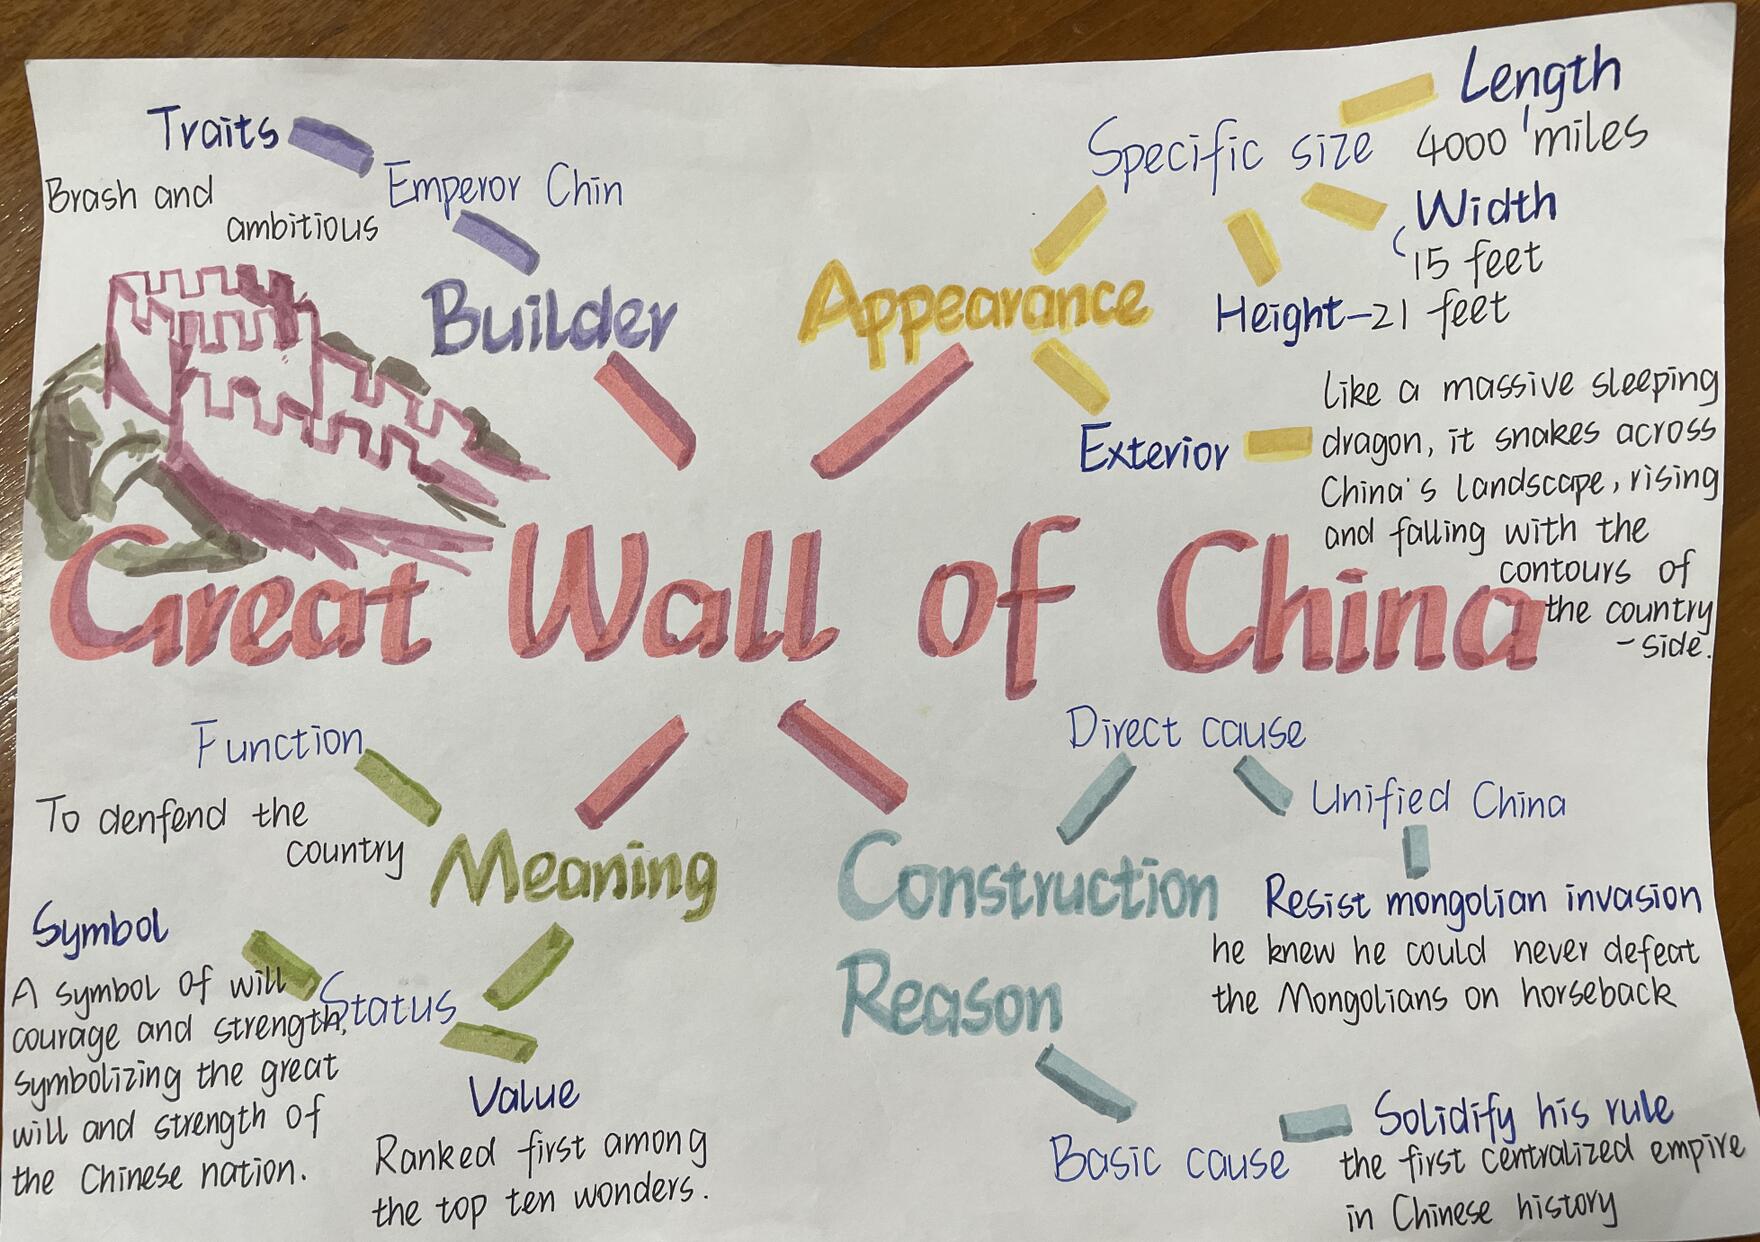 Traits
Brash and
ambitious
Emperor Chin
Builder
Appearance
Specific size
Length
4000 miles
Width
15 feet
Height-21 feet
Exterior
like a massive sleeping
dragon, it snakes across
China's landscape, rising
and falling with the
contours of
the country
-side.
Great Wall of China
Function
To denfend the
country
Meaning
Symbol
A symbol of will
courage and strength,
symbolizing the great
will and strength of
the Chinese nation.
Status
Value
Ranked first among
the top ten wonders.
Construction
Reason
Direct cause
Unified China
Resist mongolian invasion
he knew he could never defeat
the Mongolians on horseback
Basic cause
Solidify his rule
the first centralized empire
in Chinese history